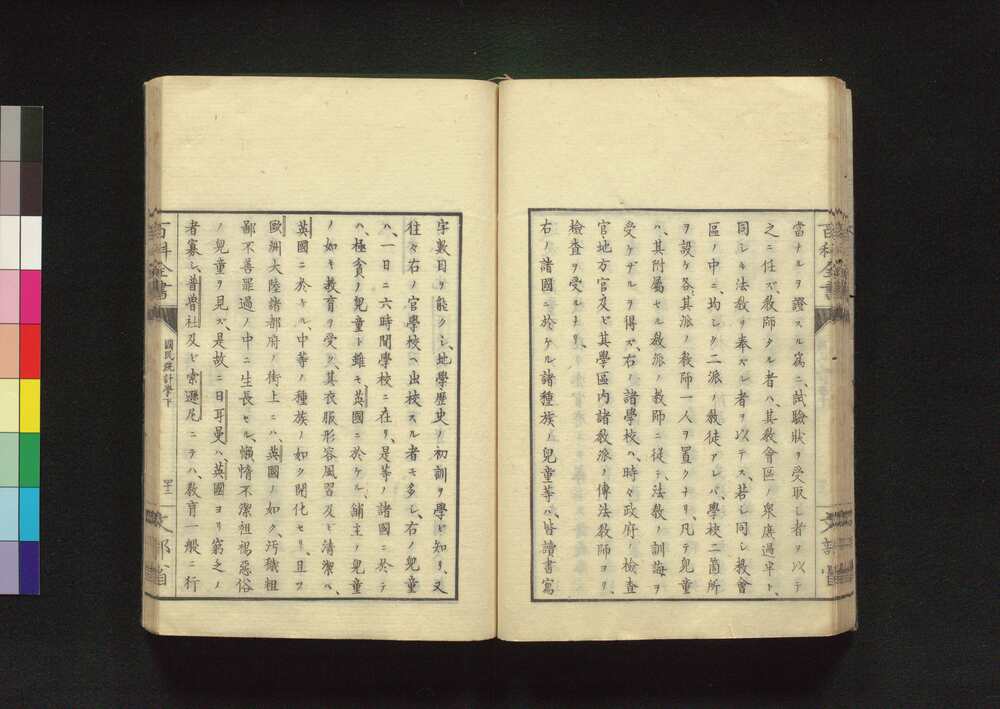 當ナルヲ證スル爲ニ、試驗狀ヲ受取シ者ヲ以テ
之ニ任ズ、敎師タル者ハ、其敎會區ノ衆庶過半ト、
同シキ法敎ヲ奉ズル者ヲ以テス、若シ同シ敎會
區ノ中ニ、均シク二派ノ敎徒アレバ、學校二箇所
ヲ設ケ、各其派ノ敎師一人ヲ置クナリ、凡テ兒童
ハ、其附屬セル敎派ノ敎師ニ從テ、法敎ノ訓誨ヲ
受ケザルヲ得ズ、右ノ諸學校ハ、時々政府ノ檢査
官地方官及ビ其學區内諸敎派ノ傳法敎師ヨリ、
檢査ヲ受ルナリ、
右ノ諸國ニ於ケル諸種族ノ兒童等ハ、皆讀書寫
字數目ヲ能クシ、地學歷史ノ初訓ヲ學ビ知リ、又
往々右ノ官學校ヘ出校スル者モ多シ、右ノ兒童
ハ、一日ニ六時間學校ニ在リ、是等ノ諸國ニ於テ
ハ、極貪ノ兒童ト雖モ、英國ニ於ケル、舖主ノ兒童
ノ如キ敎育ヲ受ク、其衣服形容風習及ビ淸潔ハ、
英國ニ於ケル、中等ノ種族ノ如ク開化セリ、且フ
歐洲大陸諸都府ノ街上ニハ、英國ノ如ク、汚穢粗
鄙不善罪過ノ中ニ生長セル、懶惰不潔袒裼惡俗
ノ兒童ヲ見ズ、是故ニ日耳曼ハ、英國ヨリ窮乏ノ
者寡シ、普魯社及ビ索遜尼ニテハ、敎育一般ニ行
百科全書
國民統計學下
四十二
文部省
百科全書
文部省